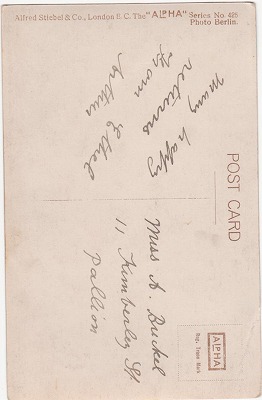 Alfred Stiebel & Co., London E. C. The "ALPHA" Series No. 425
Photo Berlin.
POST CARD
many happy
returns
from
Arthur & Ethel
Miss A. Buckel
11 Kimberley St.
Pallion
ALPHA
Reg. Trade Mark